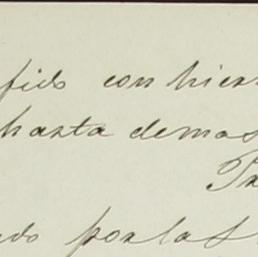 fido con hier
hasta demas
Tr
do por las